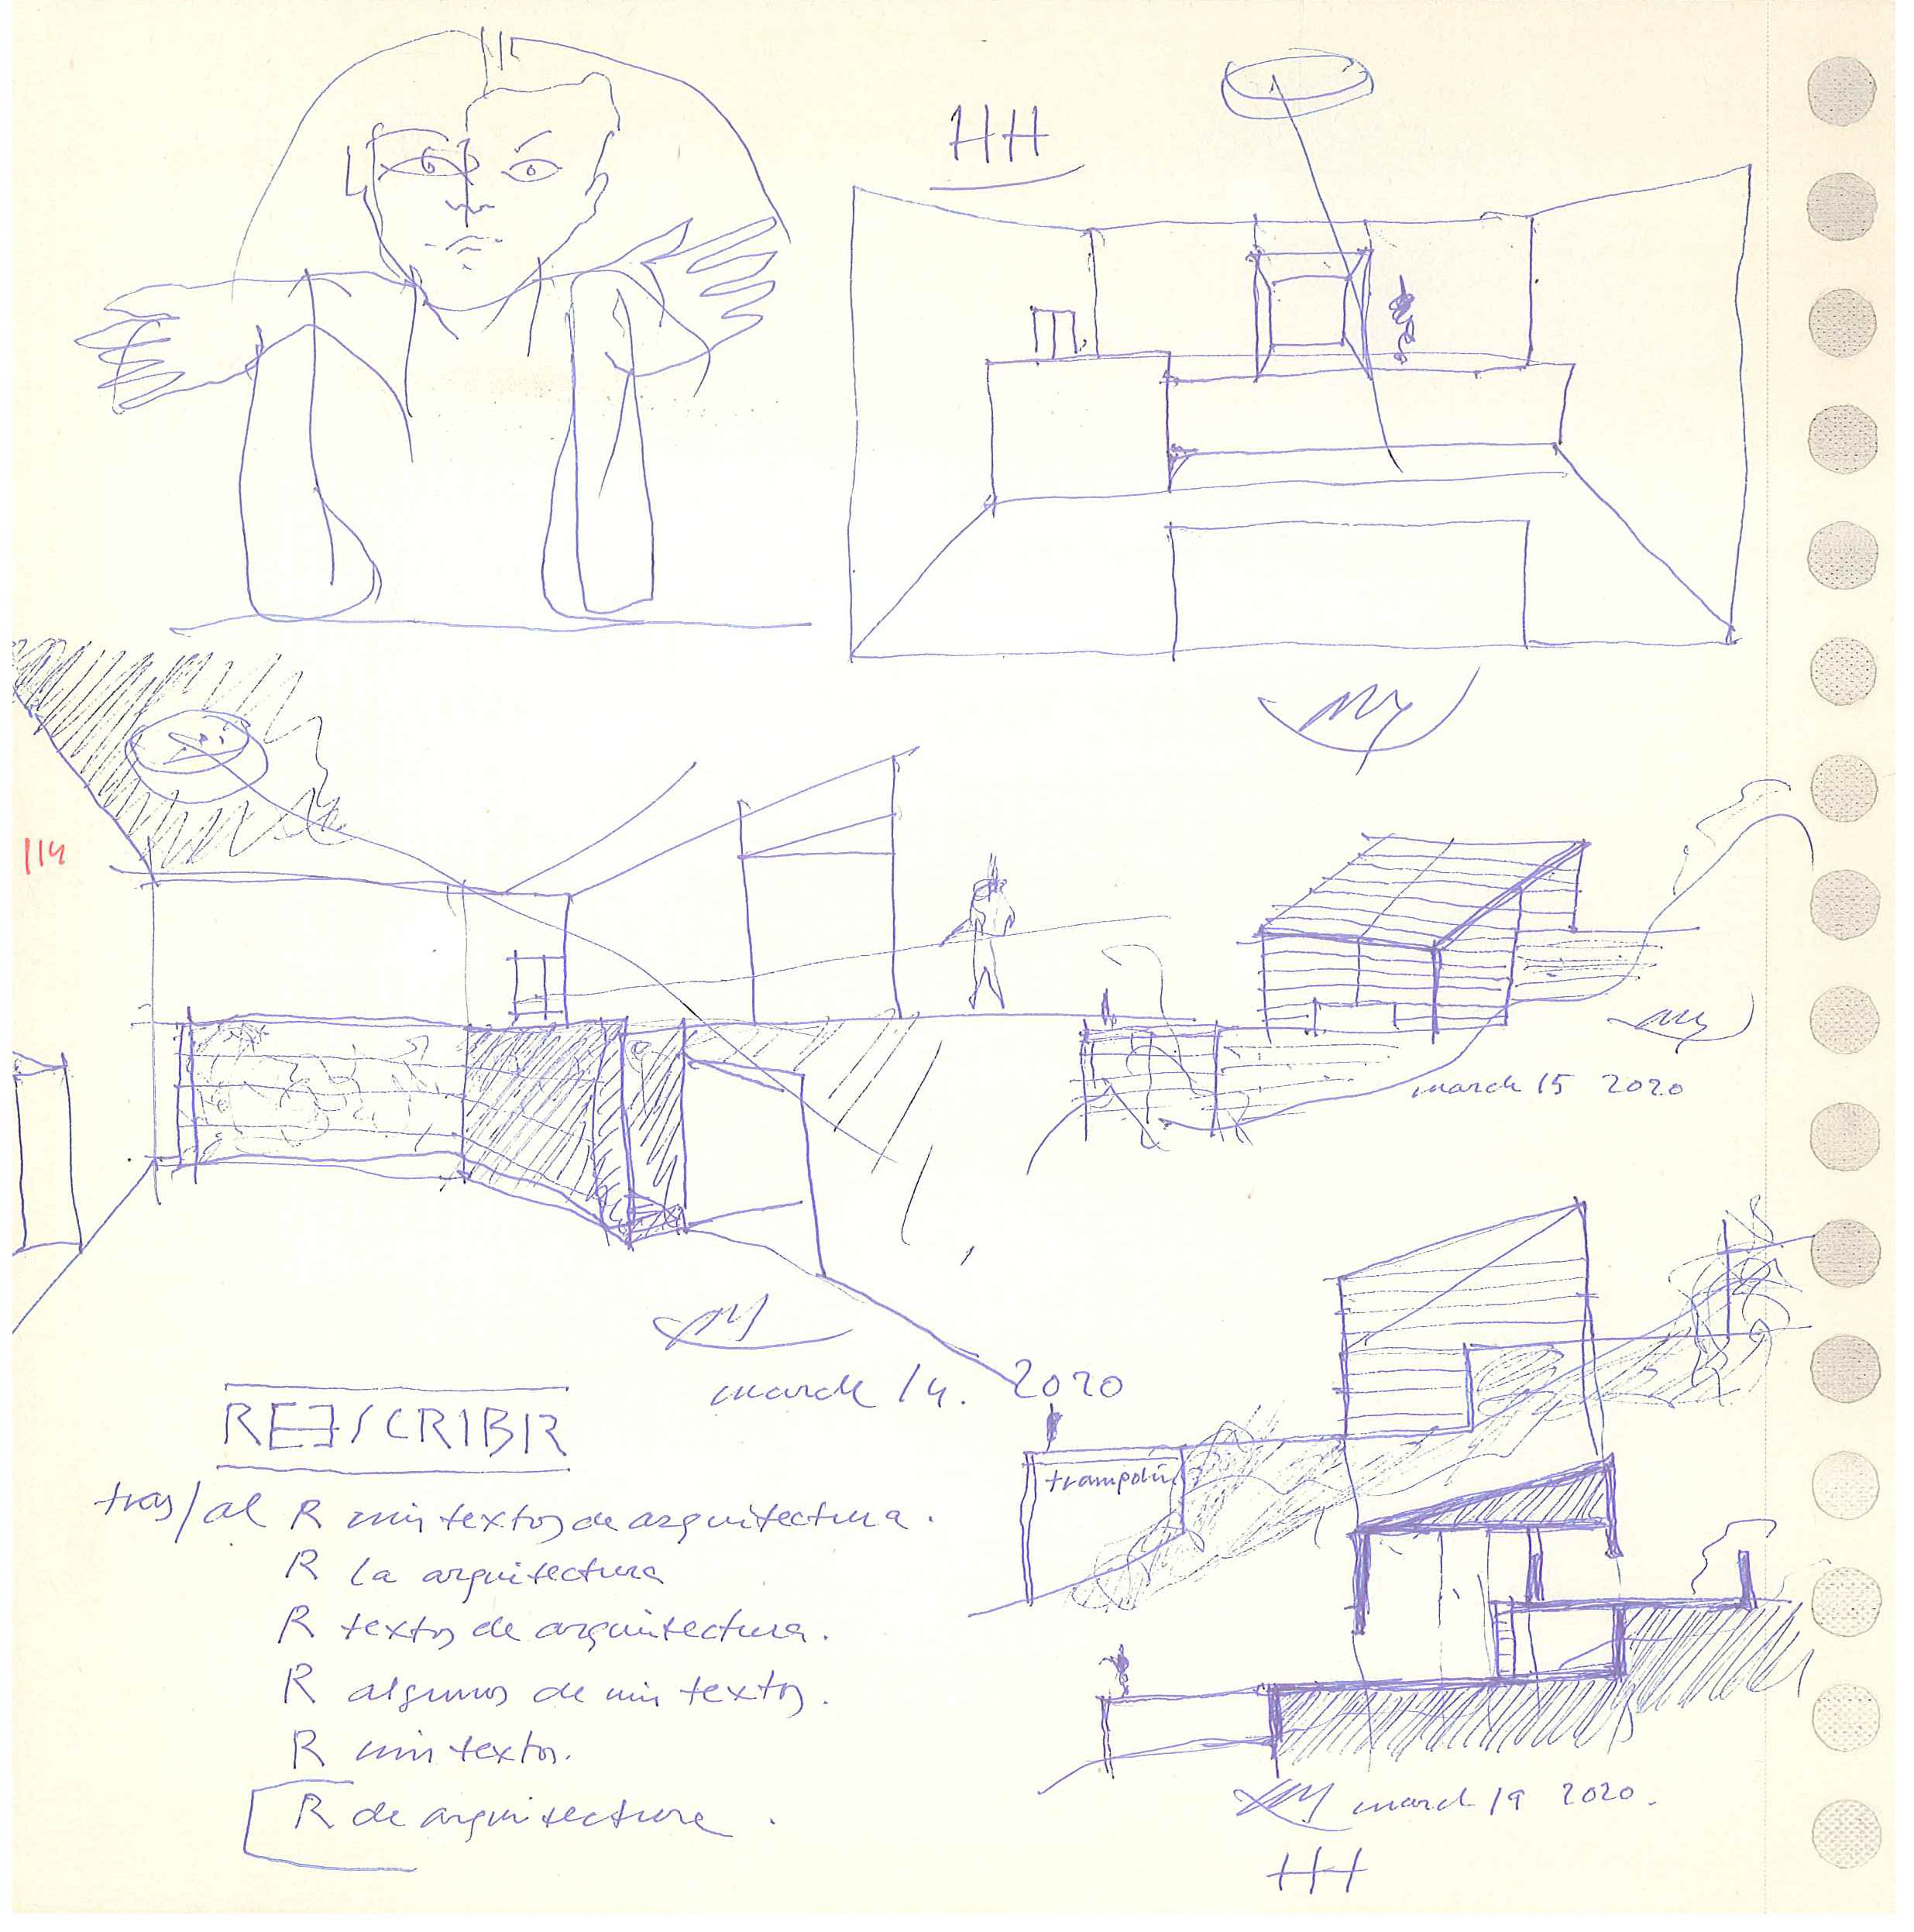 HH
114
march 15 2020
march 14. 2020
REESCRIBIR
tras/al R mis textos de arquitectura.
R la arquitectura
R textos de arquitectura.
R algunos de mis textos.
R mis textos.
R de arquitectura.
trampolín
march 19 2020.
HH